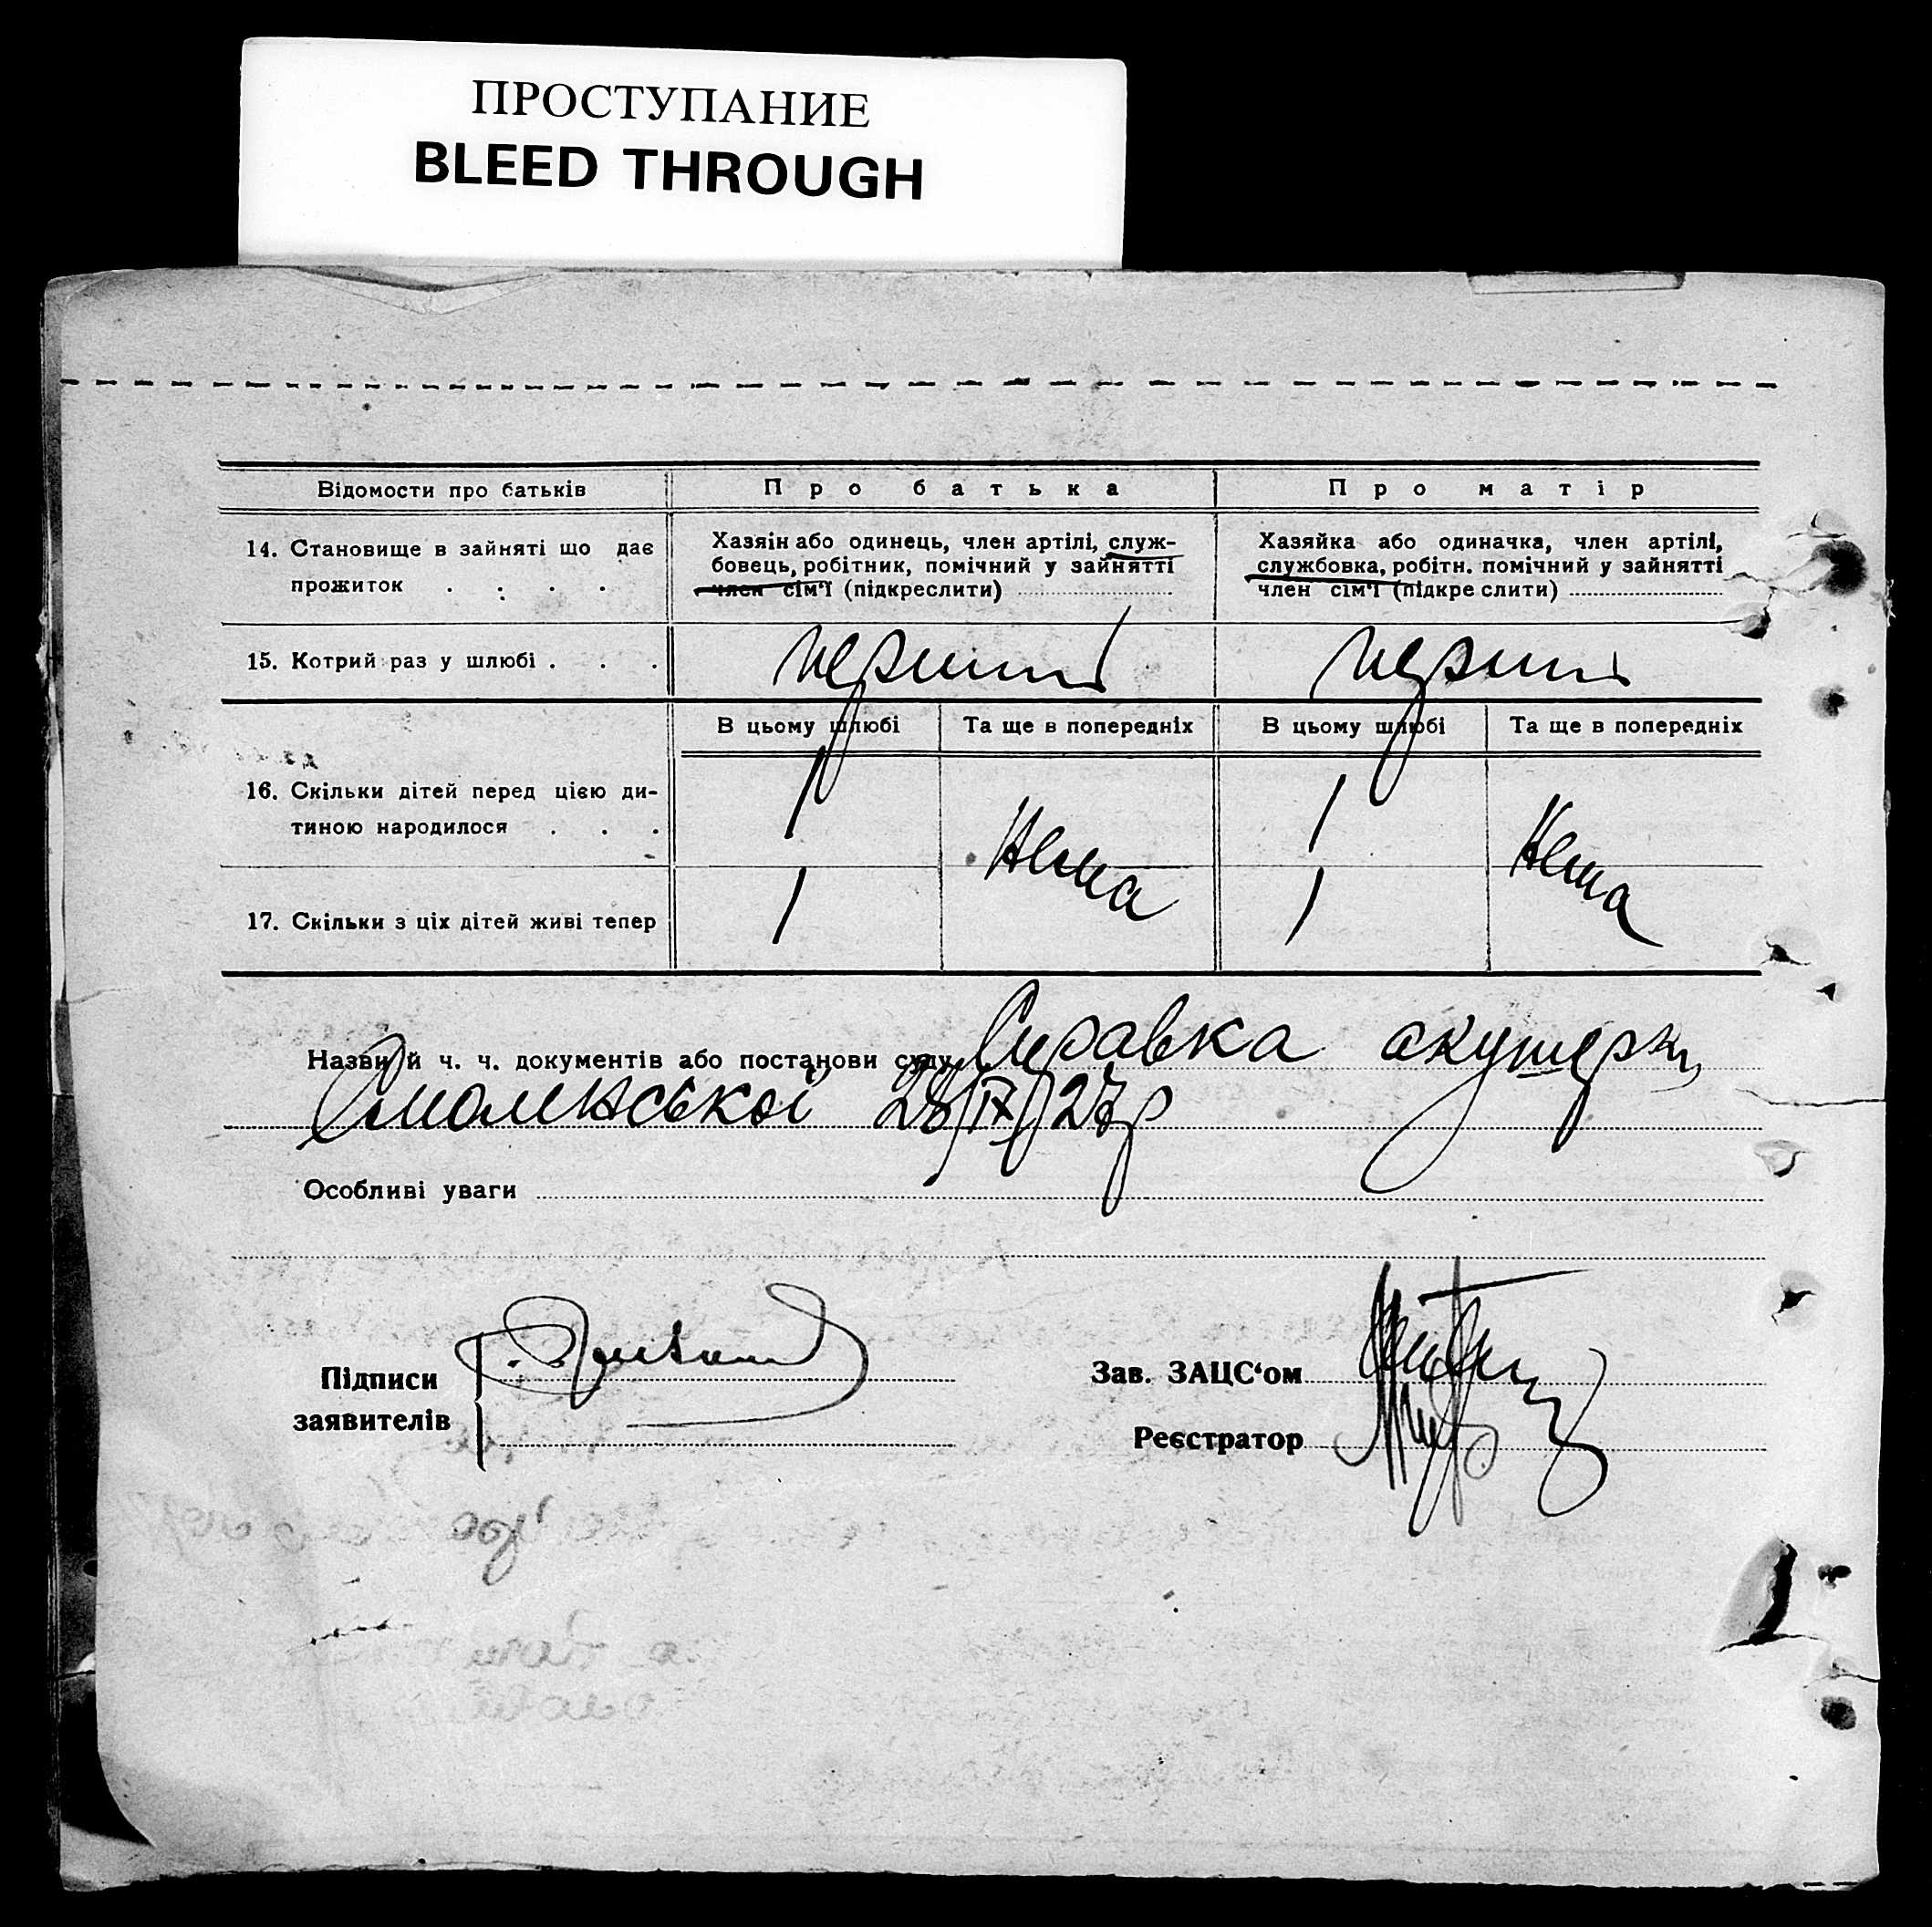 ПРОСТУПАНИЕ
BLEED THROUGH
Відомости про батьків
Про батька
Про матір
14. Становище в зайняті що дає
прожиток . . . .
Хазяін або одинець, член артілі, служ-
бовець, робітник, помічний у зайнятті
член сім'ї (підкреслити)
Хазяйка або одиначка, член артілі,
службовка, робітн. помічний у зайнятті
член сім'ї (підкреслити)
15. Котрий раз у шлюбі . . .
перший
перший
В цьому шлюбі
Та ще в попередніх
В цьому шлюбі
Та ще в попередніх
16. Скільки дітей перед цією ди-
тиною народилося . . .
1
Нема
1
Нема
17. Скільки з ціх дітей живі тепер
1
1
Назви й ч. ч. документів або постанови суду Справка акушерки
Смоленської 28/IX/27р
Особливі уваги
Підписи
заявителів
Зав. ЗАЦС'ом
Реєстратор